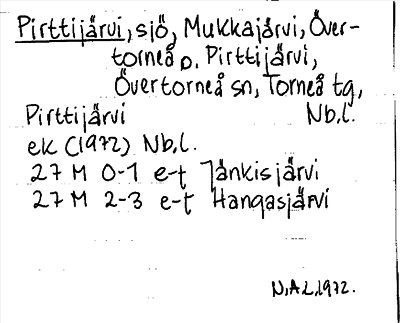 Pirttijärvi, sjö, Mukkajärvi, Över-
torneå o. Pirttijärvi,
Övertorneå sn, Torneå tg,
Pirttijärvi Nb.l.
ek (1972) Nb.l.
27 M 0-1 e-t Jänkisjärvi
27 M 2-3 e-t Hangasjärvi
N.A.L. 1972.